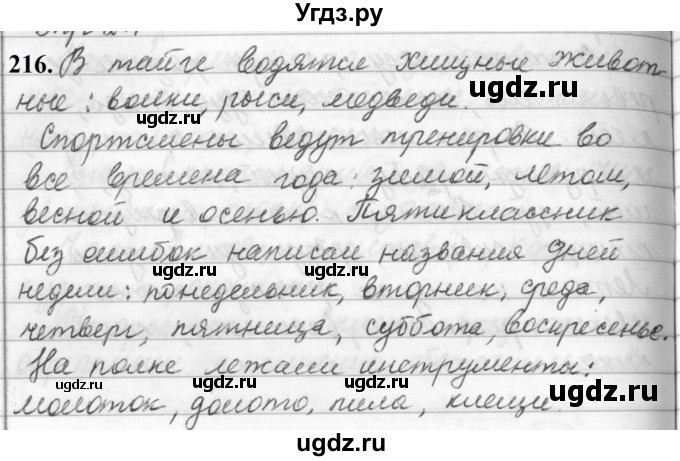 Угдз.ру
216. В тайге водятся хищные живот-
ные: волки, рыси, медведи.
ugdz.ru ugdz.ru
Спортсмены ведут тренировки во
все времена года: зимой, летом,
ugdz.ru ugdz.ru
весной и осенью. Пятиклассник
без ошибок написал названия дней
ugdz.ru ugdz.ru
недели: понедельник, вторник, среда,
четверг, пятница, суббота, воскресенье.
ugdz.ru ugdz.ru
На полке лежали инструменты:
ugdz.ru ugdz.ru ugdz.ru
молоток, долото, пила, клещи.
ugdz.ru